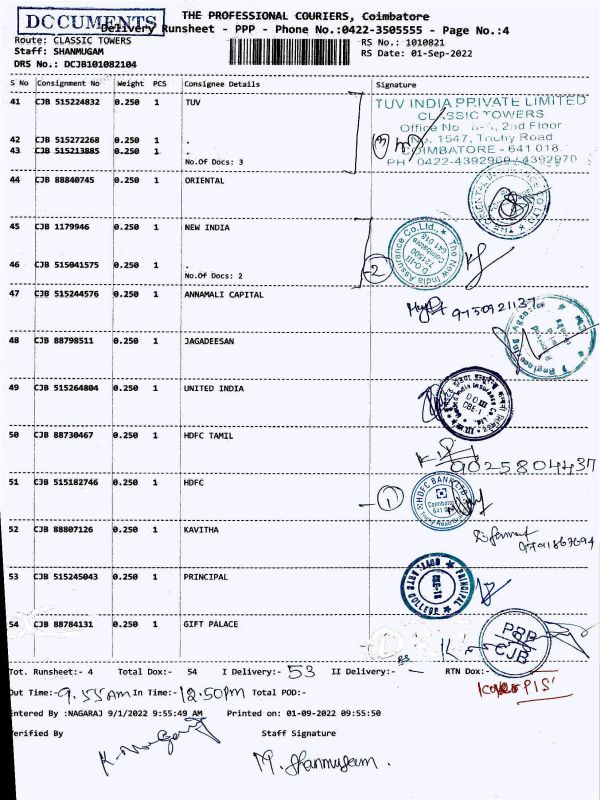 DOCUMENTS
THE PROFESSIONAL COURIERS, Coimbatore
Delivery Runsheet - PPP - Phone No.:0422-3505555 - Page No.:4
Route: CLASSIC TOWERS
Staff: SHANMUGAM
DRS No.: DCJB101082104
RS No.: 1010821
RS Date: 01-Sep-2022
S No Consignment No Weight PCS Consignee Details Signature
41 CJB 515224832 0.250 1 TUV
TUV INDIA PRIVATE LIMITED
CLASSIC TOWERS
2nd Floor
No. 1547, Trichy Road
COIMBATORE - 641 018.
PH : 0422-4392960 / 4392970
42 CJB 515272268 0.250 1 .
43 CJB 515213885 0.250 1 .
No.Of Docs: 3
3
44 CJB 88840745 0.250 1 ORIENTAL
45 CJB 1179946 0.250 1 NEW INDIA
The New India Assurance Co.Ltd.,
641 018
46 CJB 515041575 0.250 1 .
No.Of Docs: 2
2
47 CJB 515244576 0.250 1 ANNAMALI CAPITAL
9150921137
48 CJB 88798511 0.250 1 JAGADEESAN
49 CJB 515264804 0.250 1 UNITED INDIA
CBE-1
50 CJB 88730467 0.250 1 HDFC TAMIL
9025804437
51 CJB 515182746 0.250 1 HDFC
1
HDFC BANK LTD
Coimbatore
52 CJB 88807126 0.250 1 KAVITHA
53 CJB 515245043 0.250 1 PRINCIPAL
PRINCIPAL
GOVT. ARTS COLLEGE
CBE-18
54 CJB 88784131 0.250 1 GIFT PALACE
PBP
CJB
Tot. Runsheet:- 4 Total Dox:- 54 I Delivery:- 53 II Delivery:- RTN Dox:-
Out Time:- 9.55 Am In Time:- 12.50 Pm Total POD:-
Entered By :NAGARAJ 9/1/2022 9:55:49 AM Printed on: 01-09-2022 09:55:50
Verified By Staff Signature
M. Shanmugam.